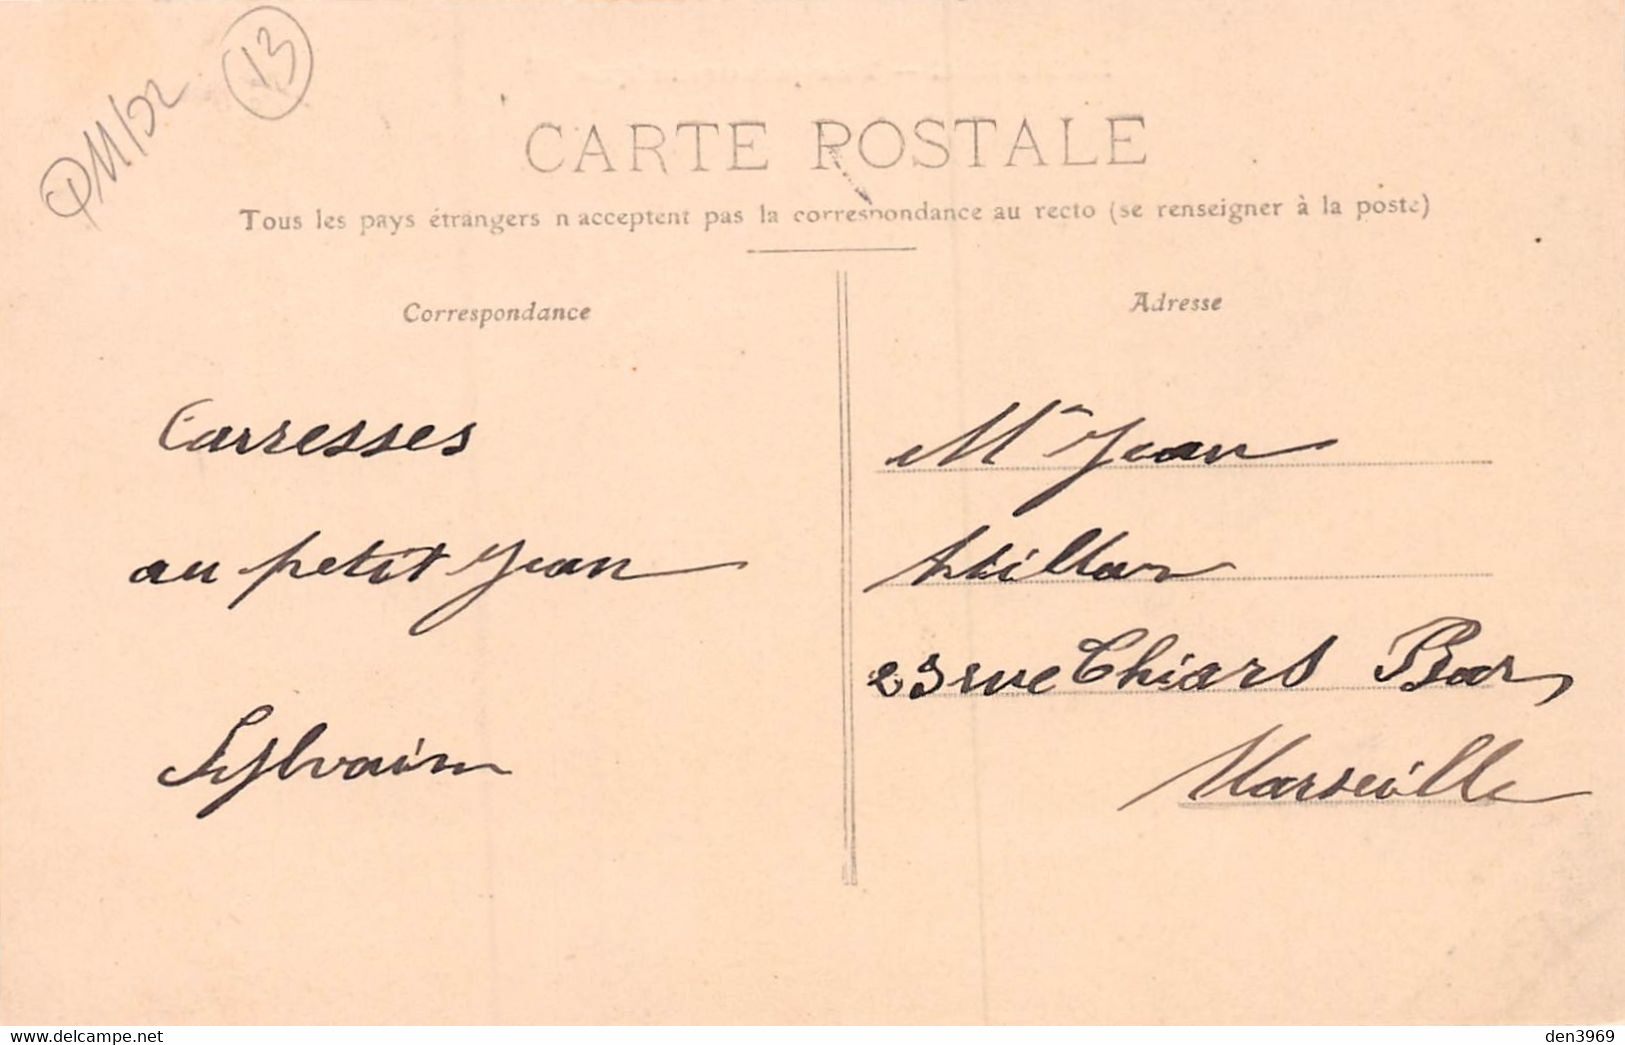 13
CARTE POSTALE
Tous les pays étrangers n acceptent pas la correspondance au recto (se renseigner à la poste)
Correspondance
Carresses
au petit Jean
Sylvain
Adresse
Mr Jean
23 rue Thiars Bar
Marseille
www.delcampe.net
den3969